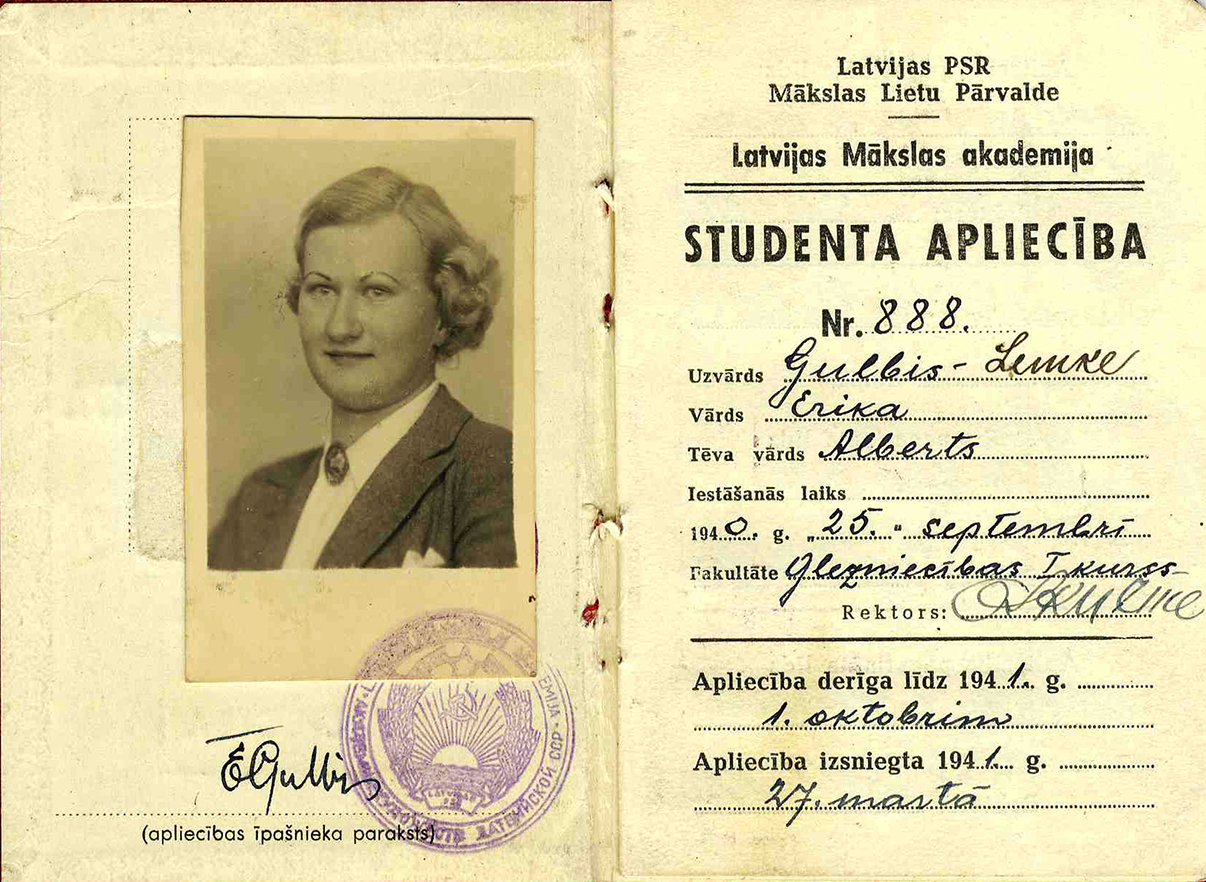 EGulbis
(apliecības īpašnieka paraksts)
ЛАТВИЙСКОЙ ССР
Latvijas PSR
Mākslas Lietu Pārvalde
Latvijas Mākslas akademija
STUDENTA APLIECĪBA
Nr. 888.
Uzvārds Gulbis-Lemke
Vārds Erika
Tēva vārds Alberts
Iestāšanās laiks
1940. g. „25." septembrī
Fakultāte Glezniecības I kurss
Rektors:
Apliecība derīga līdz 1941. g.
1. oktobrim
Apliecība izsniegta 1941. g.
27. martā